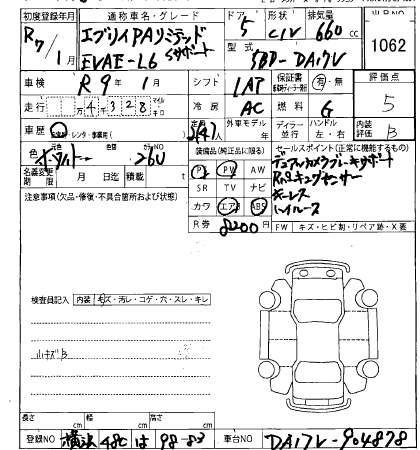 初度登録年月
R7/1月
通称車名・グレード
エブリイPAリミテッド
5サポート
EVAE-L6
ドア 5
形状 CIV
排気量 660 cc
型式 5BD-DA17V
出品NO
1062
車検 R9年1月
シフト LAT
保証書 有・無
評価点 5
走行 万4千328 マイル キロ
冷房 AC
燃料 G
車歴 自家用・レンタ・事業用(
定員
外車モデル 年
ディーラー 並行
ハンドル 左・右
内装評価 B
色 元色
色替
カラーNO 26U
名義変更期限 月 日迄
積載 t
装備品(純正品に限る)
PS PW AW
SR TV ナビ
カワ エアB ABS
R券 8200円
セールスポイント(正常に機能するもの)
デュアルカメラブレーキサポート
キーレス
ハイルーフ
FW キズ・ヒビ割・リペア跡・X要
注意事項(欠品・修復・不具合箇所および状態)
検査員記入 内装 キズ・汚レ・コゲ・穴・スレ・キレ
小キズB
長さ cm
幅 cm
高さ cm
登録NO 横浜 480 は 98-83
車台NO DA17V-904878